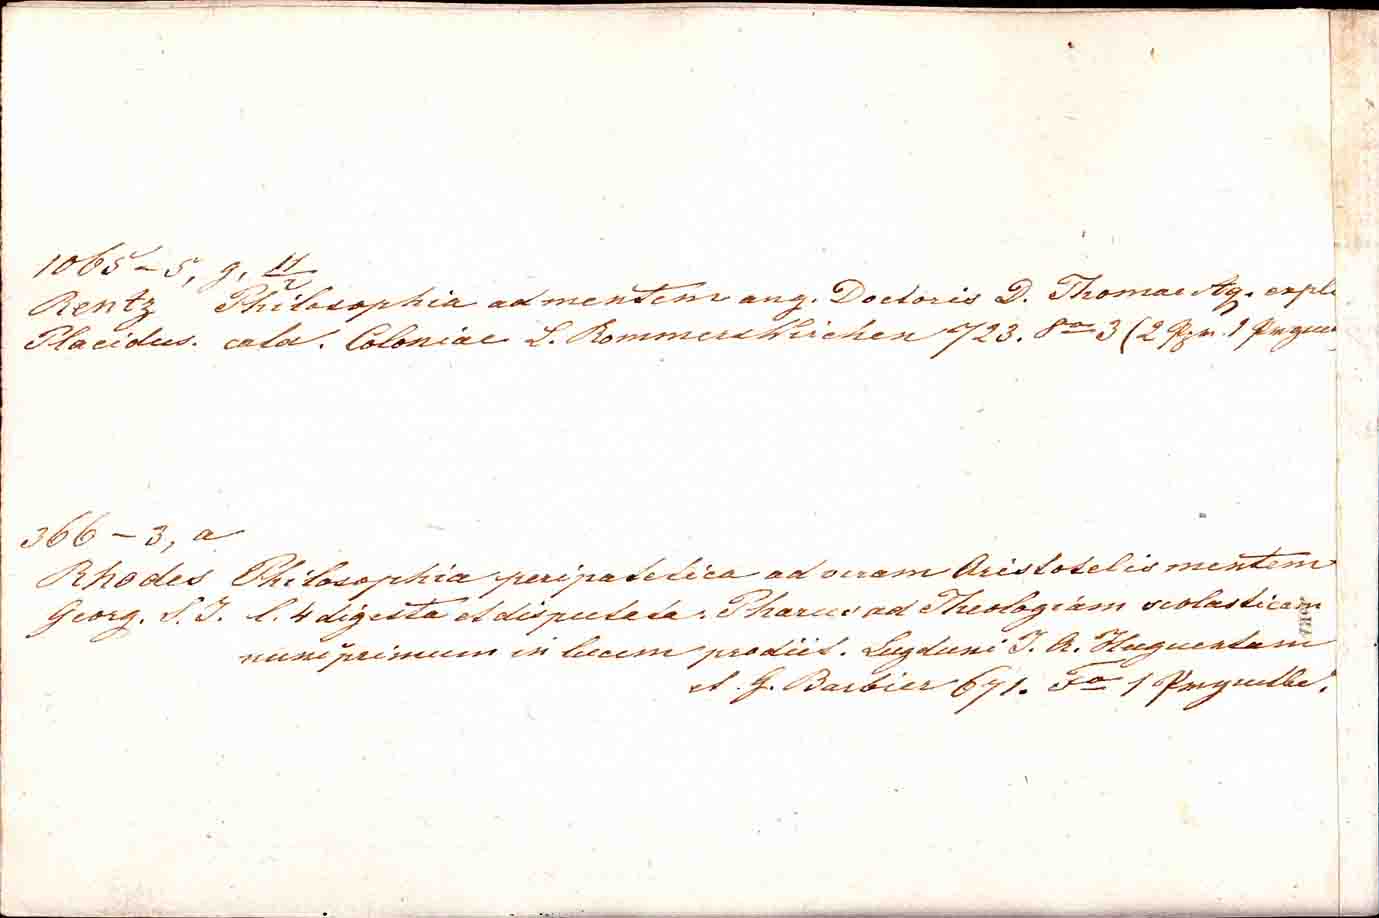 1065 - 5, g, 11/2
Rentz Philosophia ad mentem ang. Doctoris D. Thomae Aq. expli
Placidus. cata. Coloniae L. Rommerskirchen 723. 8º 3 (2 Pgn. 1
366 - 3, a
Rhodes Philosophia peripatetica ad veram Aristotelis mentem
Georg. S. J. l. 4 digesta et disputata. Pharus ad Theologiam scolasticam
nunc primum in lucem prodiit. Lugduni J. A. Huguestam
et G. Barbier 671. Fº 1